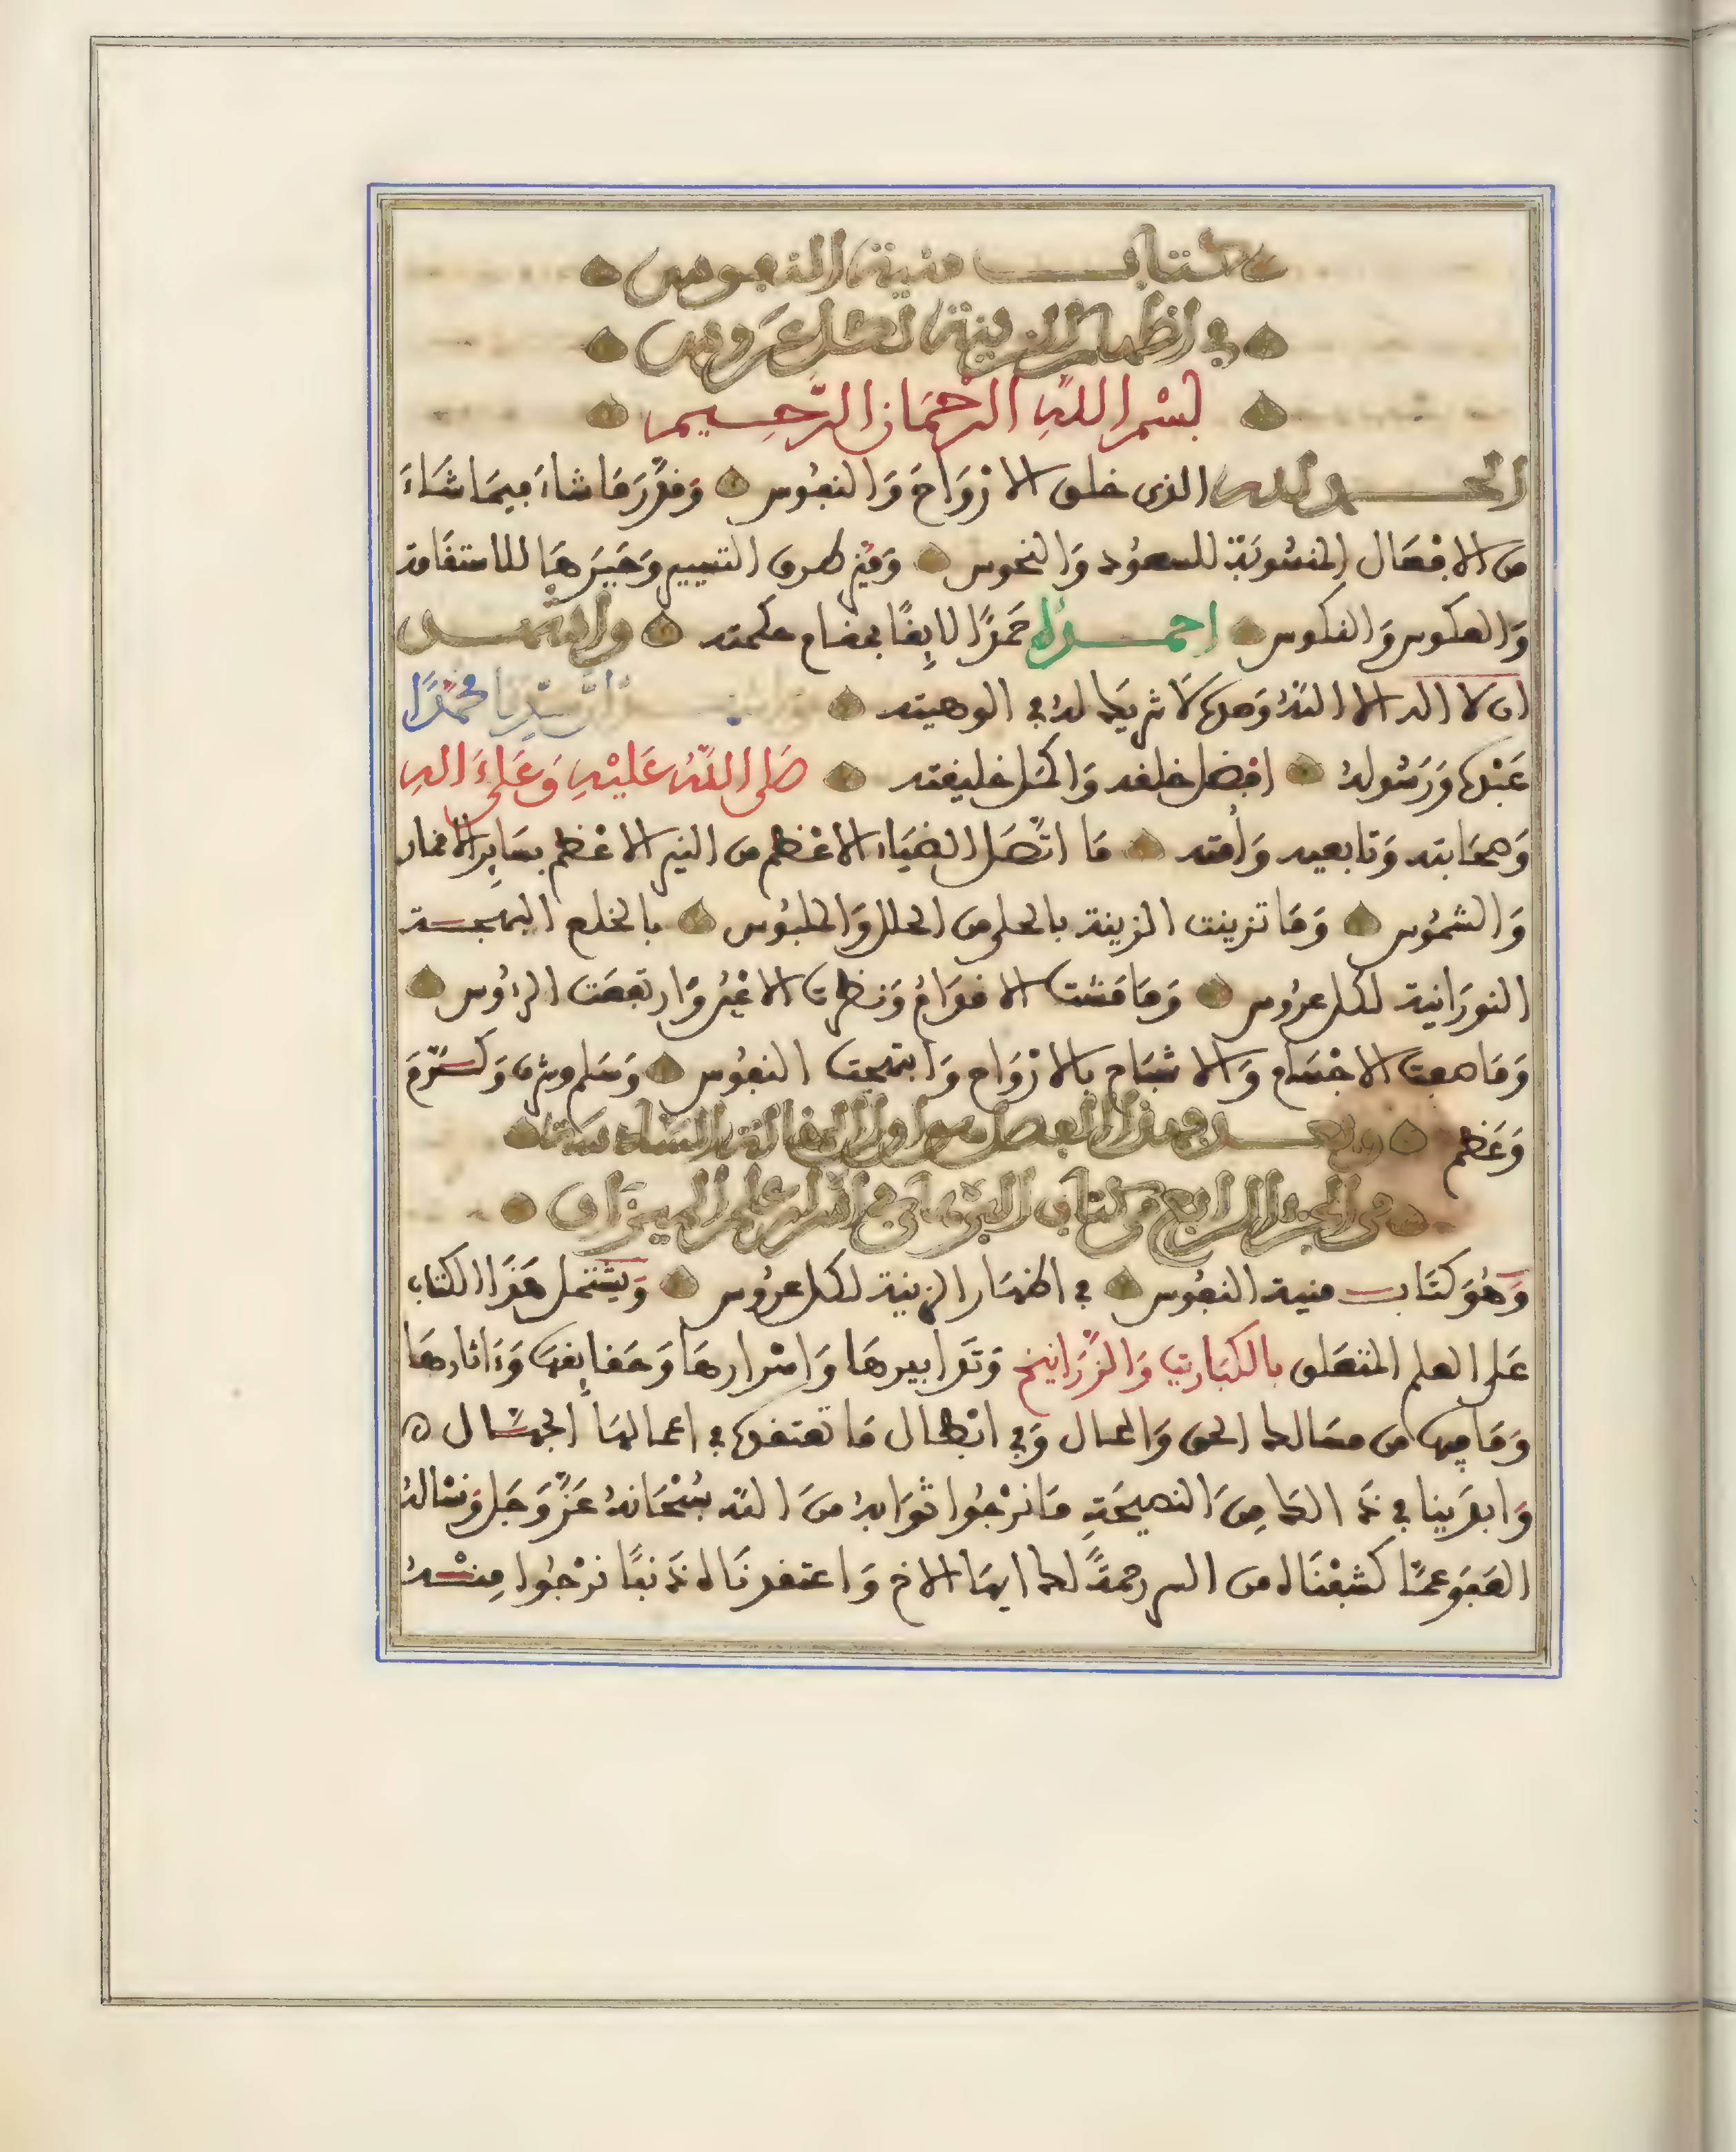 كتاب منية النفوس
في اظهار الزينة لكل عروس
بسم اللهِ الرحمَان الرَّحِيم
الحمد لله الذى خلق الارْوَاحَ وَالنفُوس وَقدَّرَ مَا شاءَ فِيمَا شَاءَ
من الافْعَال المنسُوبَة للسعُود وَالنحوس طرق التسيير للاستقَامة
وَالعكوس وَالنكوس احمده حَمْدًا لايِقًا بمقام حكمته واشهد
ان لا اله الا اللهُ وَحدهُ لَا شريكَ لهُ في الوهيته واشهد ان سَيِّدنا محمدًا
عَبْدهُ وَرَسُولهُ افْضل خلقه وَاكمَل خليقته صَلى اللهُ عَليْهِ وَعَلَى ءَالهِ
وَصحَابته وَتابعيه وَأمته مَا اتَّصَل الضيَاء الاعْظم من النير الاعْظم بسَايِر الاقمار
وَالشمُوس وَمَا تزينت الزينة بالحلي من الحلل وَالملبُوس بالخلع البهجة
النورَانية لكل عرُوس وَمَا مَشت الاقوَامُ وَنظرت الاعْيُن وَارتفعَت الرءُوس
وَمَا صفت الاجْسَام وَالاشْبَاح بالارْوَاح وَابتهجت النفُوس وَسَلم وشرف وَكَرَّمَ
وَعَظم وبعد فهذا الفصل هو اول المقالة السَّادسَة
من الجزء الرابع من كتاب البرهان في اسرار علم الميزان
وَهُوَ كتَاب منية النفُوس في اظهَار الزينة لكل عرُوس وَيشتمل هَذَا الكتاب
عَلى العلم المتعَلق بالكبَاريت وَالزَّرَانيخ وَتدَابيرهَا وَاسْرارهَا وَحقَايِقهَا وَءَاثارهَا
وَمَا فِيهَا من مسَالك الحق وَالمحال وَفي ابْطال مَا تعتقدهُ في اعمالهَا الجهَّال
وَابدَينا في ذَلك مِنَ النصيحَةِ مَا نرْجُوا ثوَابهُ منَ الله سُبْحَانهُ عَزَّ وَجَل وَنسْالهُ
العَفوَ عمَّا كشفْنَاه من السر رحمةً لك ايهَا الاخ وَاعتقدنَاه ذَنبًا نرْجُوا مِنْهُ